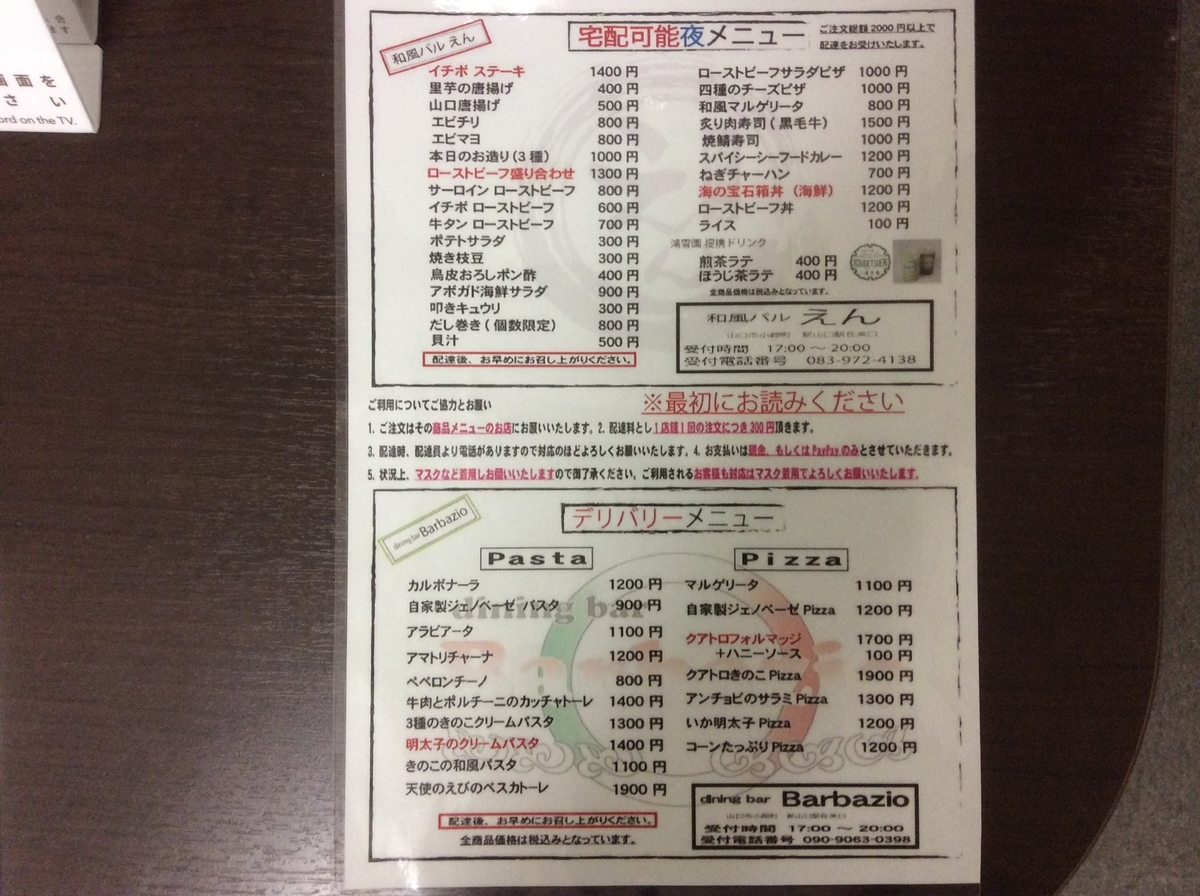 画面を
さい
ord on the TV.
和風バル えん
宅配可能夜メニュー
ご注文総額 2000 円以上で
配達をお受けいたします。
イチボ ステーキ 1400 円
里芋の唐揚げ 400 円
山口唐揚げ 500 円
エビチリ 800 円
エビマヨ 800 円
本日のお造り(3 種) 1000 円
ローストビーフ盛り合わせ 1300 円
サーロイン ローストビーフ 800 円
イチボ ローストビーフ 600 円
牛タン ローストビーフ 700 円
ポテトサラダ 300 円
焼き枝豆 300 円
鳥皮おろしポン酢 400 円
アボガド海鮮サラダ 900 円
叩きキュウリ 300 円
だし巻き(個数限定) 800 円
貝汁 500 円
配達後、お早めにお召し上がりください。
ローストビーフサラダピザ 1000 円
四種のチーズピザ 1000 円
和風マルゲリータ 800 円
炙り肉寿司(黒毛牛) 1500 円
焼鯖寿司 1000 円
スパイシーシーフードカレー 1200 円
ねぎチャーハン 700 円
海の宝石箱丼(海鮮) 1200 円
ローストビーフ丼 1200 円
ライス 100 円
鴻雪園 提携ドリンク
煎茶ラテ 400 円
ほうじ茶ラテ 400 円
全商品価格は税込みとなっています。
和風バル えん
山口市小郡町 新山口駅在来口
受付時間 17:00 〜 20:00
受付電話番号 083-972-4138
ご利用についてご協力とお願い
※最初にお読みください
1. ご注文はその商品メニューのお店にお願いいたします。2. 配達料とし1店舗1回の注文につき300円頂きます。
3. 配達時、配達員より電話がありますので対応のほどよろしくお願いいたします。4. お支払いは現金、もしくはPayPayのみとさせていただきます。
5. 状況上、マスクなど着用しお伺いいたしますので御了承ください。ご利用されるお客様も対応はマスク着用でよろしくお願いいたします。
dining bar Barbazio
デリバリーメニュー
Pasta
カルボナーラ 1200 円
自家製ジェノベーゼ パスタ 900 円
アラビアータ 1100 円
アマトリチャーナ 1200 円
ペペロンチーノ 800 円
牛肉とポルチーニのカッチャトーレ 1400 円
3種のきのこクリームパスタ 1300 円
明太子のクリームパスタ 1400 円
きのこの和風パスタ 1100 円
天使のえびのペスカトーレ 1900 円
配達後、お早めにお召し上がりください。
全商品価格は税込みとなっています。
Pizza
マルゲリータ 1100 円
自家製ジェノベーゼ Pizza 1200 円
クアトロフォルマッジ 1700 円
+ハニーソース 100 円
クアトロきのこ Pizza 1900 円
アンチョビのサラミ Pizza 1300 円
いか明太子 Pizza 1200 円
コーンたっぷり Pizza 1200 円
dining bar Barbazio
山口市小郡町 新山口駅在来口
受付時間 17:00 〜 20:00
受付電話番号 090-9063-0398